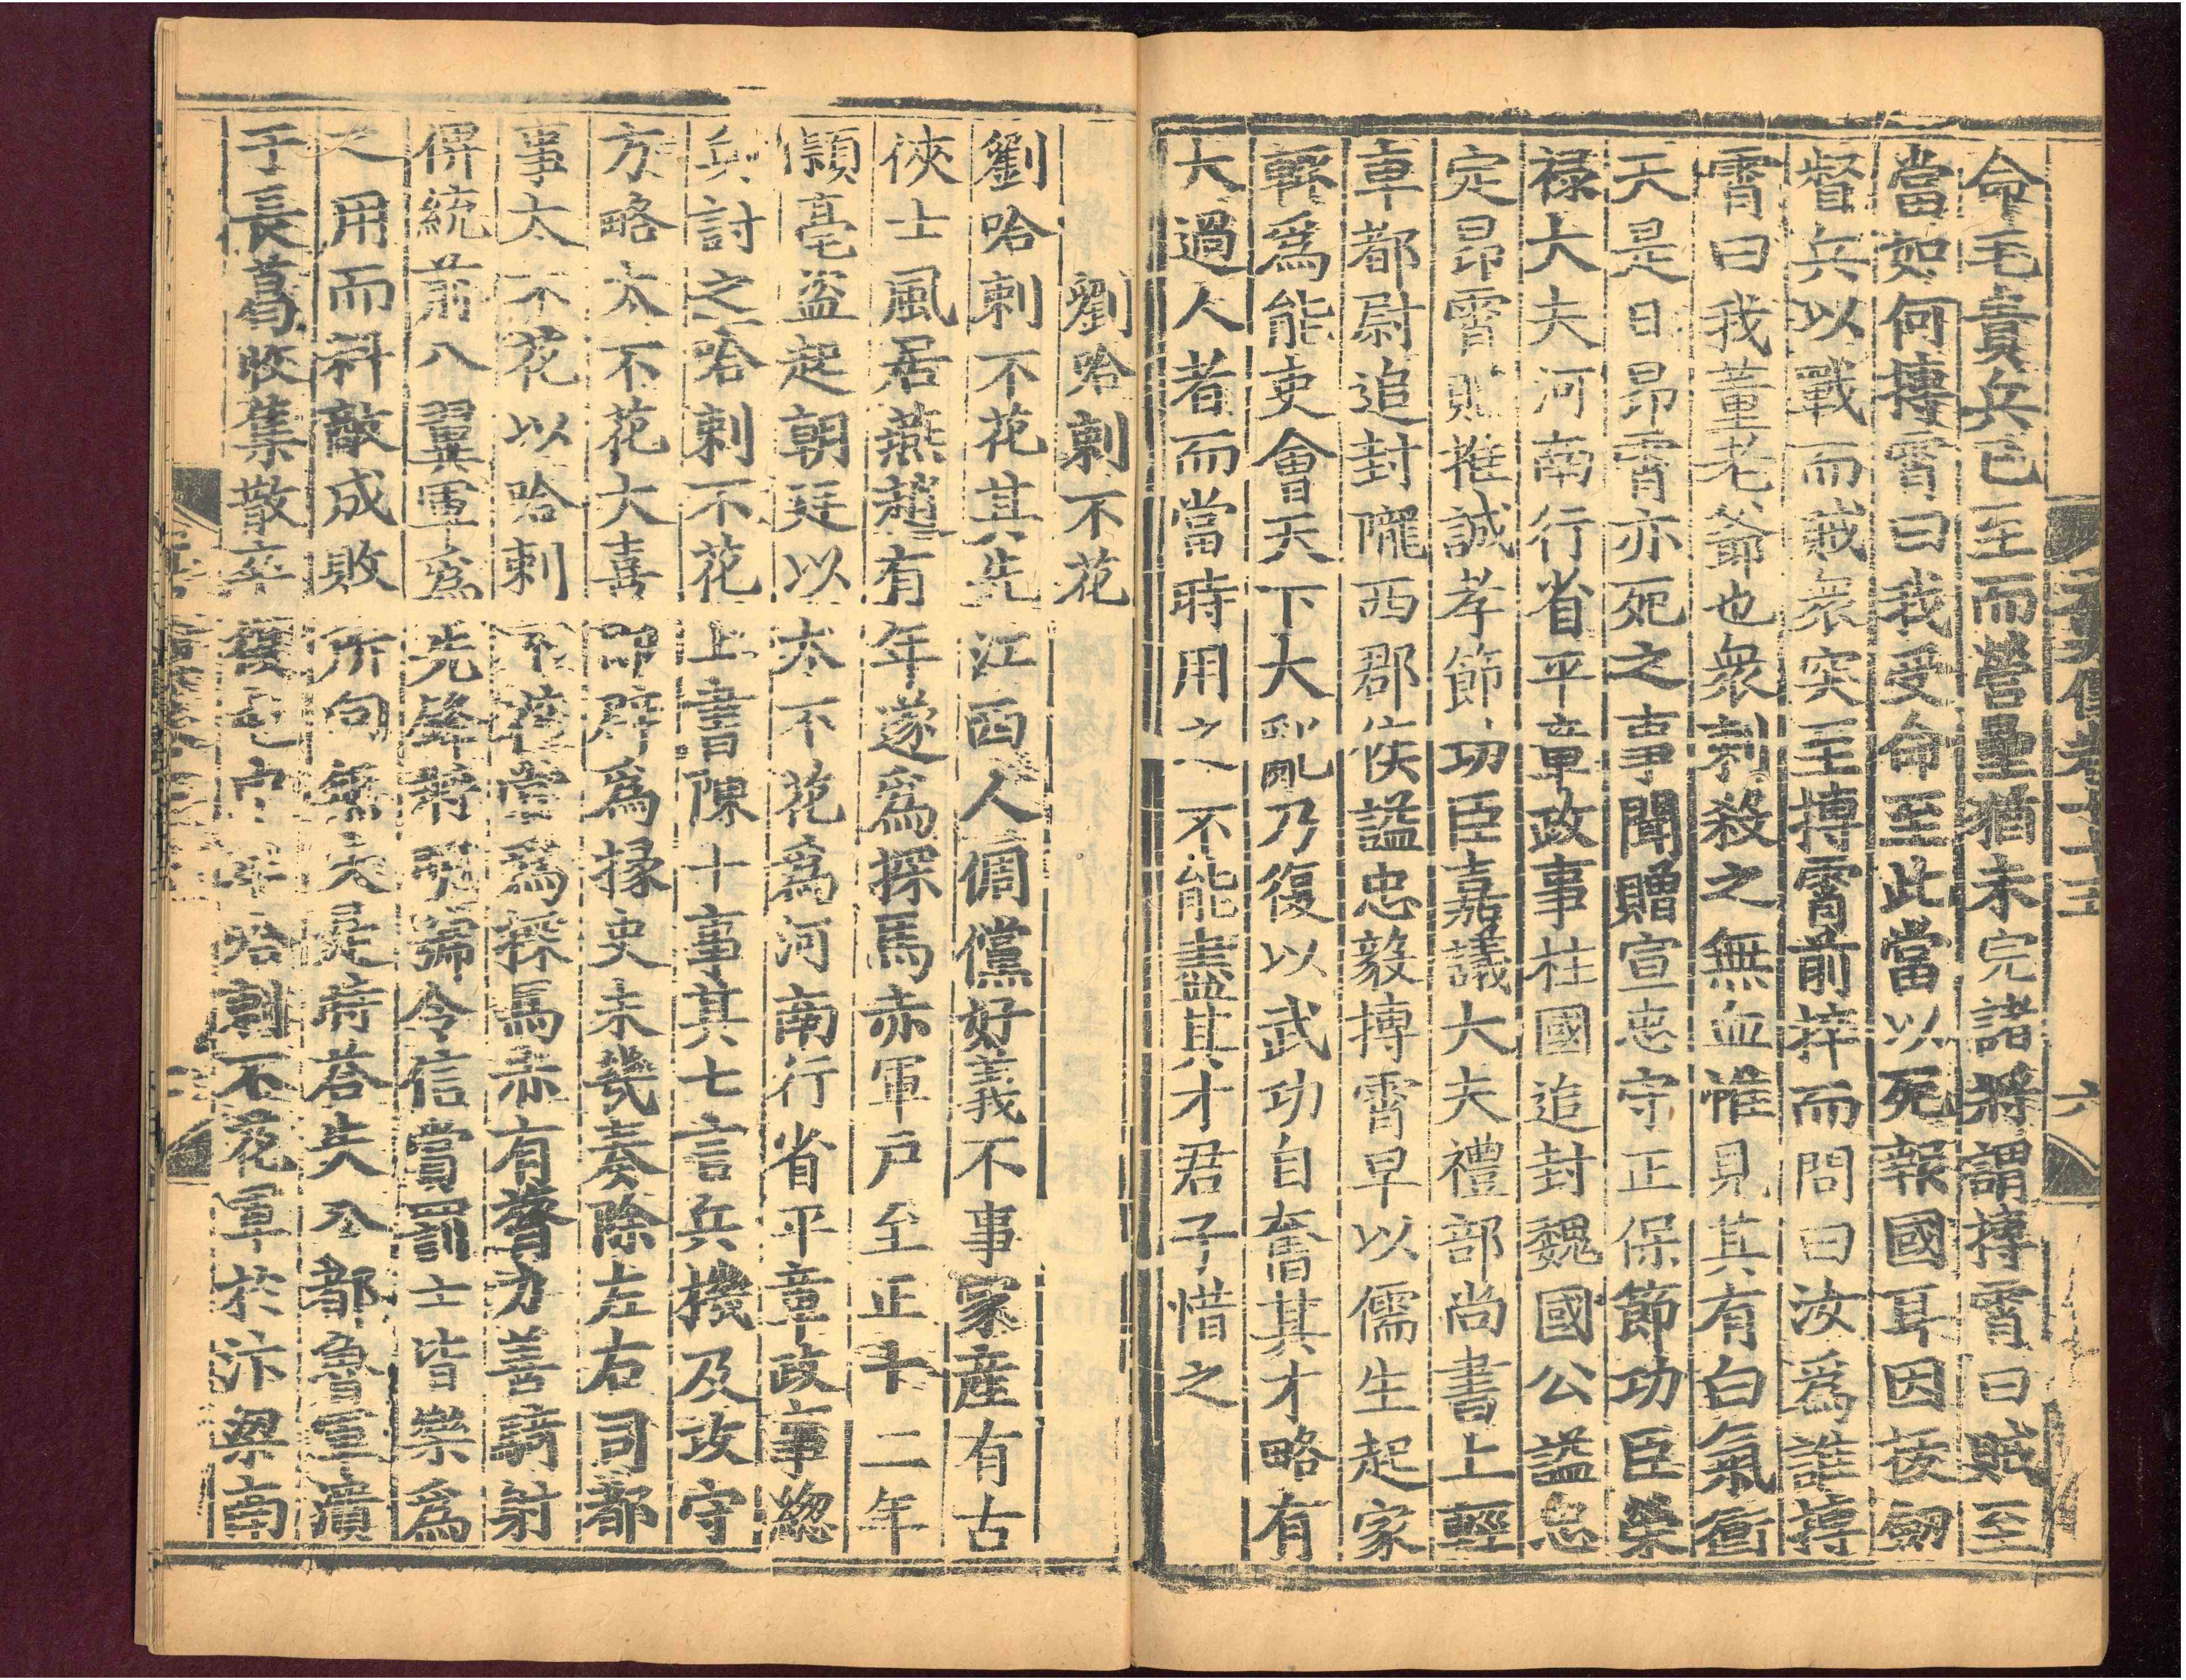 命毛貴兵已至而營壘猶未完諸將謂摶霄曰賊至
當如何摶霄曰我受命至此當以死報國耳因拔劒
督兵以戰而賊衆突至摶霄前捽而問曰汝爲誰摶
霄曰我董老爺也衆刺殺之無血惟見其有白氣衝
天是日昂霄亦死之事聞贈宣忠守正保節功臣榮
祿大夫河南行省平章政事柱國追封魏國公諡忠
定昂霄贈推誠孝節功臣嘉議大夫禮部尚書上輕
車都尉追封隴西郡侯諡忠毅摶霄早以儒生起家
輒爲能吏會天下大亂乃復以武功自奮其才略有
大過人者而當時用之不能盡其才君子惜之
劉哈剌不花
劉哈剌不花其先江西人倜儻好義不事家産有古
俠士風居燕趙有年遂爲探馬赤軍戶至正十二年
潁亳盜起朝廷以太不花爲河南行省平章政事緫
兵討之哈剌不花上書陳十事其七言兵機及攻守
方略太不花大喜即辟爲掾史未幾奏除左右司都
事太不花以哈剌不花嘗爲探馬赤有膂力善騎射
俾統前八翼軍爲先鋒將號令信賞罰士皆樂爲
之用而料敵成敗所向無失是時荅失八都魯軍潰
于長葛收集散卒復屯中牟哈剌不花軍於汴梁南